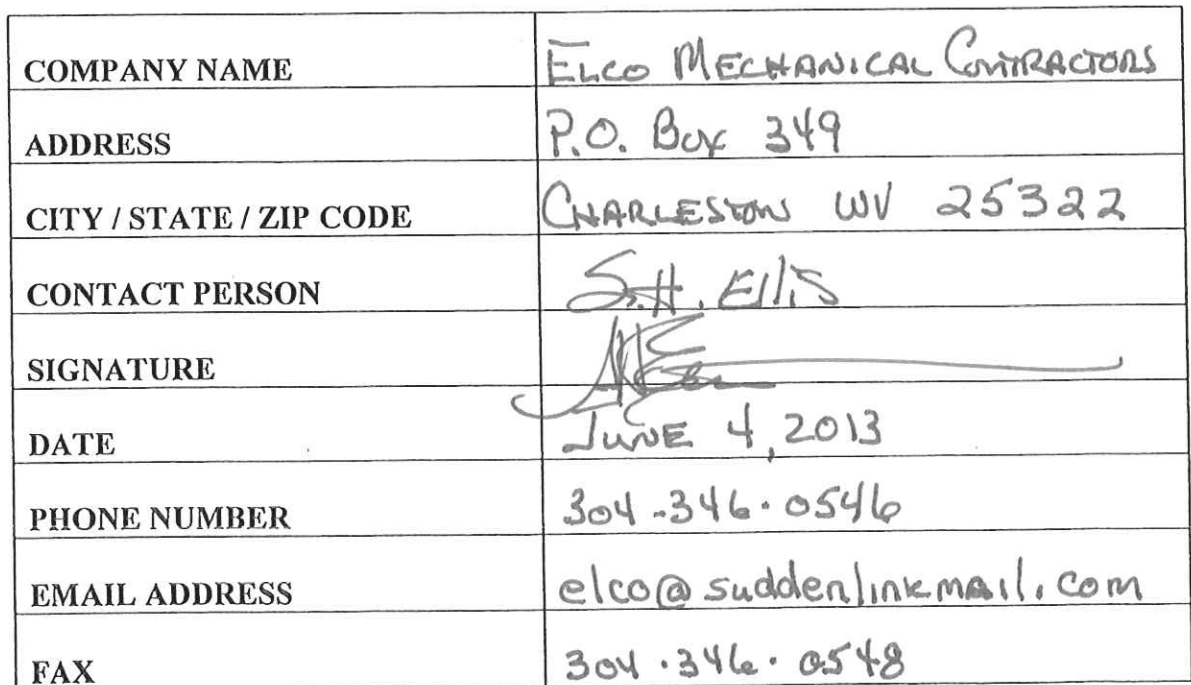 COMPANY NAME ELCO MECHANICAL CONTRACTORS
ADDRESS P.O. Box 349
CITY / STATE / ZIP CODE CHARLESTON WV 25322
CONTACT PERSON S.H. Ellis
SIGNATURE
DATE JUNE 4, 2013
PHONE NUMBER 304-346·0546
EMAIL ADDRESS elco@suddenlinkmail.com
FAX 304·346·0548